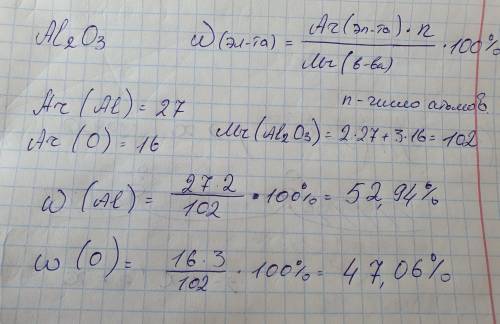 Al₂O₃
ω(эл-та) = Ar(эл-та)·n / Mr(в-ва) · 100%
n - число атомов
Ar(Al) = 27
Ar(O) = 16
Mr(Al₂O₃) = 2·27+3·16 = 102
ω(Al) = 27·2 / 102 · 100% = 52,94%
ω(O) = 16·3 / 102 · 100% = 47,06%